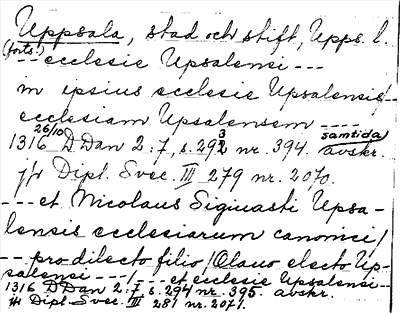 Uppsala, stad och stift, Upps. l.
(forts.)
--- ecclesie Upsalensi ---
in ipsius ecclesie Upsalensis/--
ecclesiam Upsalensem ----
26/10 samtida
1316 D Dan 2:7, s. 292 3 nr. 394. avskr.
jfr Dipl. Svec. III 279 nr. 2070.
--- et Nicolaus Sigwasti Upsa-
lensis ecclesiarum canonici/
-- pro dilecto filio/Olauo electo Up-
salensi ---/--- et ecclesie Upsalensi--
1316 D Dan 2:7 s. 294 nr. 395. avskr.
jfr Dipl. Svec. III 281 nr. 2071.